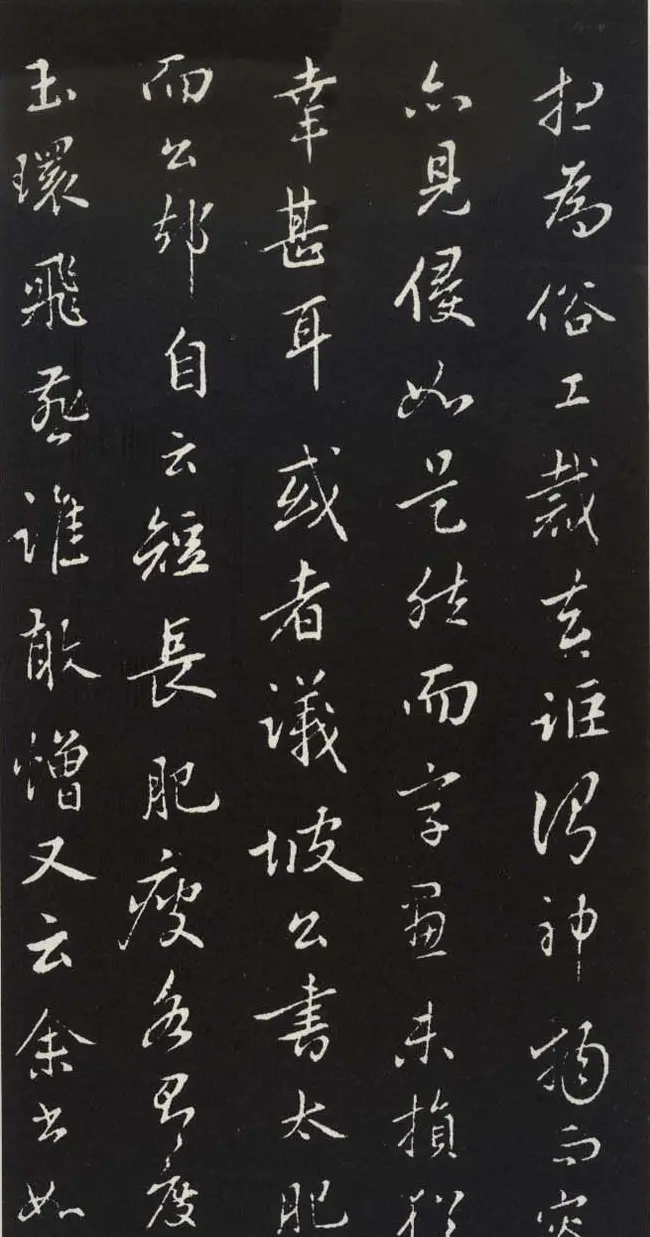 為俗工裁去詎謂神物而
亦見侵如是然而字畫未損猶
幸甚耳或者議坡公書太肥
而公却自云短長肥瘦各有度
玉環飛燕誰敢憎又云余書如